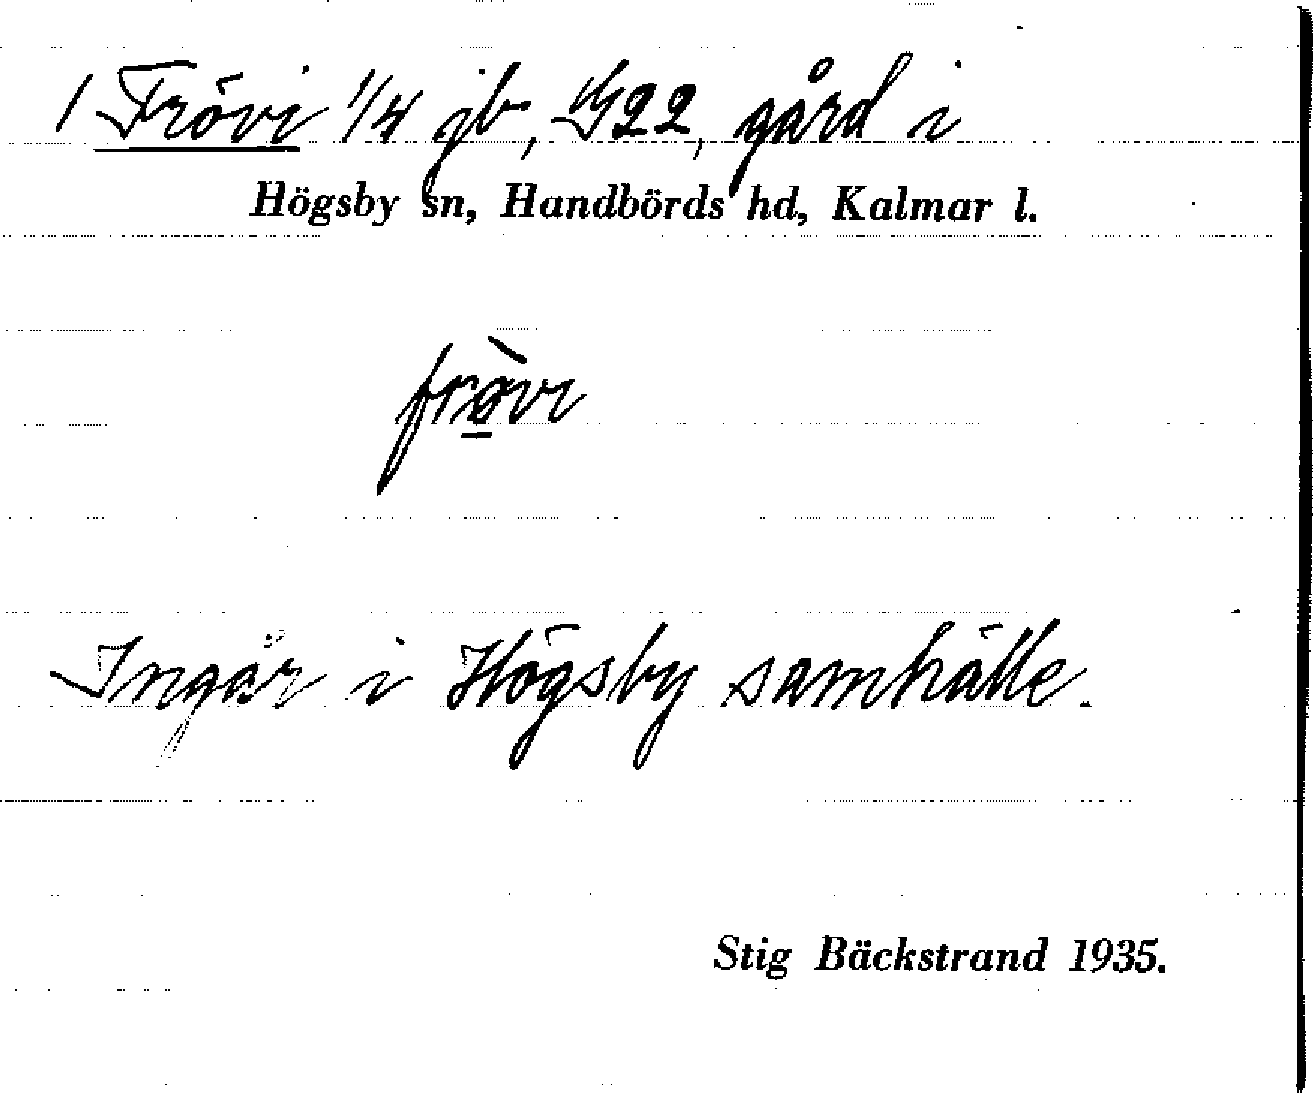 1 Frövi 1/4 jb, G22, gård i
Högsby sn, Handbörds hd, Kalmar l.
fròvi
Ingår i Högsby samhälle.
Stig Bäckstrand 1935.